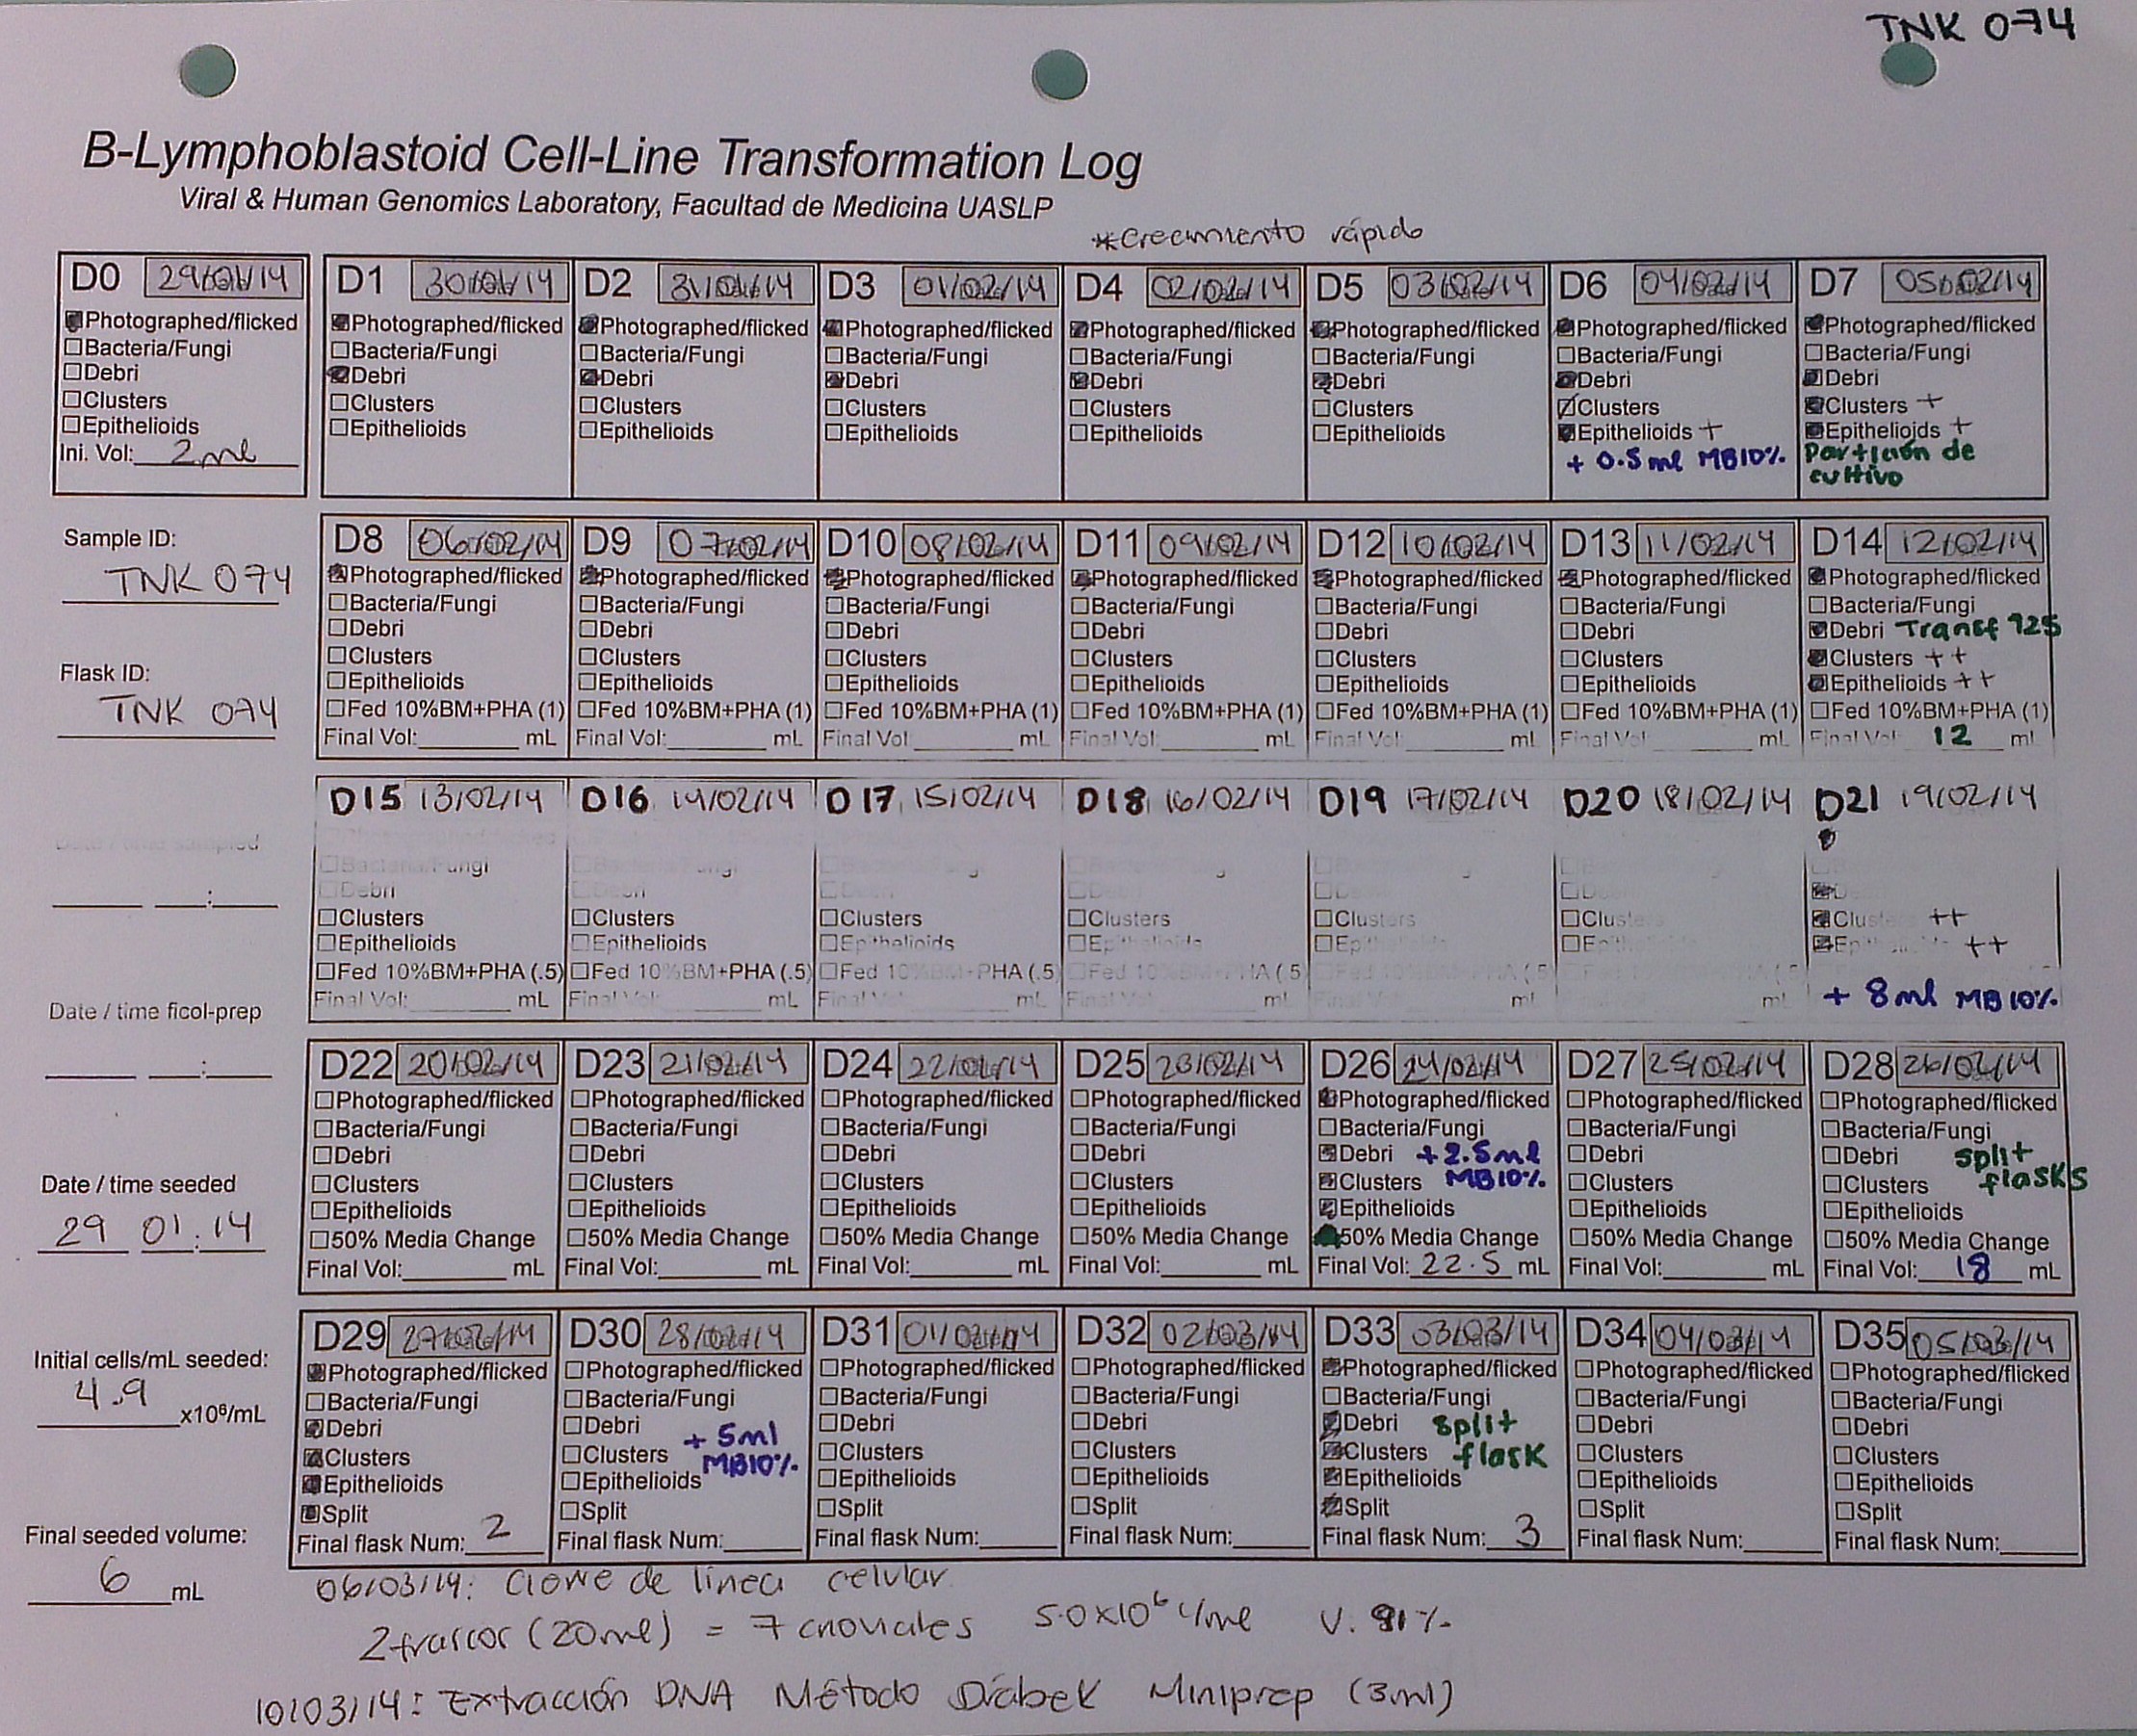 TNK 074
B-Lymphoblastoid Cell-Line Transformation Log
Viral & Human Genomics Laboratory, Facultad de Medicina UASLP
*Crecimiento rápido
D0 29/01/14
Photographed/flicked
Bacteria/Fungi
Debri
Clusters
Epithelioids
Ini. Vol: 2ml
D1 30/01/14
Photographed/flicked
Bacteria/Fungi
Debri
Clusters
Epithelioids
D2 31/01/14
Photographed/flicked
Bacteria/Fungi
Debri
Clusters
Epithelioids
D3 01/02/14
Photographed/flicked
Bacteria/Fungi
Debri
Clusters
Epithelioids
D4 02/02/14
Photographed/flicked
Bacteria/Fungi
Debri
Clusters
Epithelioids
D5 03/02/14
Photographed/flicked
Bacteria/Fungi
Debri
Clusters
Epithelioids
D6 04/02/14
Photographed/flicked
Bacteria/Fungi
Debri
Clusters
Epithelioids +
+ 0.5 ml MB10%
D7 05/02/14
Photographed/flicked
Bacteria/Fungi
Debri
Clusters +
Epithelioids +
Partición de
cultivo
Sample ID:
TNK 074
Flask ID:
TNK 074
D8 06/02/14
Photographed/flicked
Bacteria/Fungi
Debri
Clusters
Epithelioids
Fed 10%BM+PHA (1)
Final Vol: mL
D9 07/02/14
Photographed/flicked
Bacteria/Fungi
Debri
Clusters
Epithelioids
Fed 10%BM+PHA (1)
Final Vol: mL
D10 08/02/14
Photographed/flicked
Bacteria/Fungi
Debri
Clusters
Epithelioids
Fed 10%BM+PHA (1)
Final Vol mL
D11 09/02/14
Photographed/flicked
Bacteria/Fungi
Debri
Clusters
Epithelioids
Fed 10%BM+PHA (1)
Final Vol: mL
D12 10/02/14
Photographed/flicked
Bacteria/Fungi
Debri
Clusters
Epithelioids
Fed 10%BM+PHA (1)
Final Vol: mL
D13 11/02/14
Photographed/flicked
Bacteria/Fungi
Debri
Clusters
Epithelioids
Fed 10%BM+PHA (1)
Final Vol mL
D14 12/02/14
Photographed/flicked
Bacteria/Fungi
Debri Transf
Clusters ++
Epithelioids ++
Fed 10%BM+PHA (1)
Final Vol: 12 mL
Date / time sampled
:
Date / time ficol-prep
:
D15 13/02/14
Bacteria/Fungi
Debri
Clusters
Epithelioids
Fed 10%BM+PHA (.5)
Final Vol: mL
D16 14/02/14
Bacteria/Fungi
Debri
Clusters
Epithelioids
Fed 10%BM+PHA (.5)
Final Vol: mL
D17 15/02/14
Clusters
Epithelioids
Fed 10%BM+PHA (.5)
Final Vol mL
D18 16/02/14
Clusters
Epithelioids
Fed 10%BM+PHA (.5)
Final Vol: mL
D19 17/02/14
Clusters
mL
D20 18/02/14
mL
D21 19/02/14
++
++
+ 8ml MB10%
Date / time seeded
29 01:14
D22 20/02/14
Photographed/flicked
Bacteria/Fungi
Debri
Clusters
Epithelioids
50% Media Change
Final Vol: mL
D23 21/02/14
Photographed/flicked
Bacteria/Fungi
Debri
Clusters
Epithelioids
50% Media Change
Final Vol: mL
D24 22/02/14
Photographed/flicked
Bacteria/Fungi
Debri
Clusters
Epithelioids
50% Media Change
Final Vol: mL
D25 23/02/14
Photographed/flicked
Bacteria/Fungi
Debri
Clusters
Epithelioids
50% Media Change
Final Vol: mL
D26 24/02/14
Photographed/flicked
Bacteria/Fungi
Debri +2.5ml
Clusters MB10%
Epithelioids
50% Media Change
Final Vol: 22.5 mL
D27 25/02/14
Photographed/flicked
Bacteria/Fungi
Debri
Clusters
Epithelioids
50% Media Change
Final Vol: mL
D28 26/02/14
Photographed/flicked
Bacteria/Fungi
Debri split
Clusters flasks
Epithelioids
50% Media Change
Final Vol: 18 mL
Initial cells/mL seeded:
4.9 x10⁶/mL
Final seeded volume:
6 mL
D29 27/02/14
Photographed/flicked
Bacteria/Fungi
Debri
Clusters
Epithelioids
Split
Final flask Num: 2
D30 28/02/14
Photographed/flicked
Bacteria/Fungi
Debri + 5ml
Clusters MB10%
Epithelioids
Split
Final flask Num:
D31 01/03/14
Photographed/flicked
Bacteria/Fungi
Debri
Clusters
Epithelioids
Split
Final flask Num:
D32 02/03/14
Photographed/flicked
Bacteria/Fungi
Debri
Clusters
Epithelioids
Split
Final flask Num:
D33 03/03/14
Photographed/flicked
Bacteria/Fungi
Debri split
Clusters flask
Epithelioids
Split
Final flask Num: 3
D34 04/03/14
Photographed/flicked
Bacteria/Fungi
Debri
Clusters
Epithelioids
Split
Final flask Num:
D35 05/03/14
Photographed/flicked
Bacteria/Fungi
Debri
Clusters
Epithelioids
Split
Final flask Num:
06/03/14: Cierre de linea celular
2 frascos (20ml) = 7 crioviales 5.0x10⁶ c/ml V. 91%
10/03/14: Extracción DNA Método Drábek Miniprep (3ml)